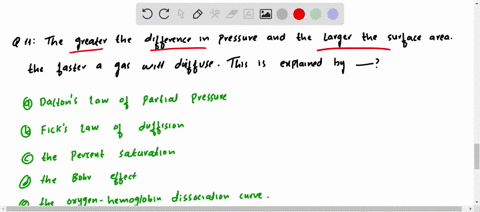 Q 11: The greater the difference in pressure and the larger the surface area.
the faster a gas will diffuse. This is explained by __?
a Dalton's law of partial pressure
b Fick's law of duffision
c the percent saturation
d the Bohr effect
e the oxygen-hemoglobin dissociation curve.